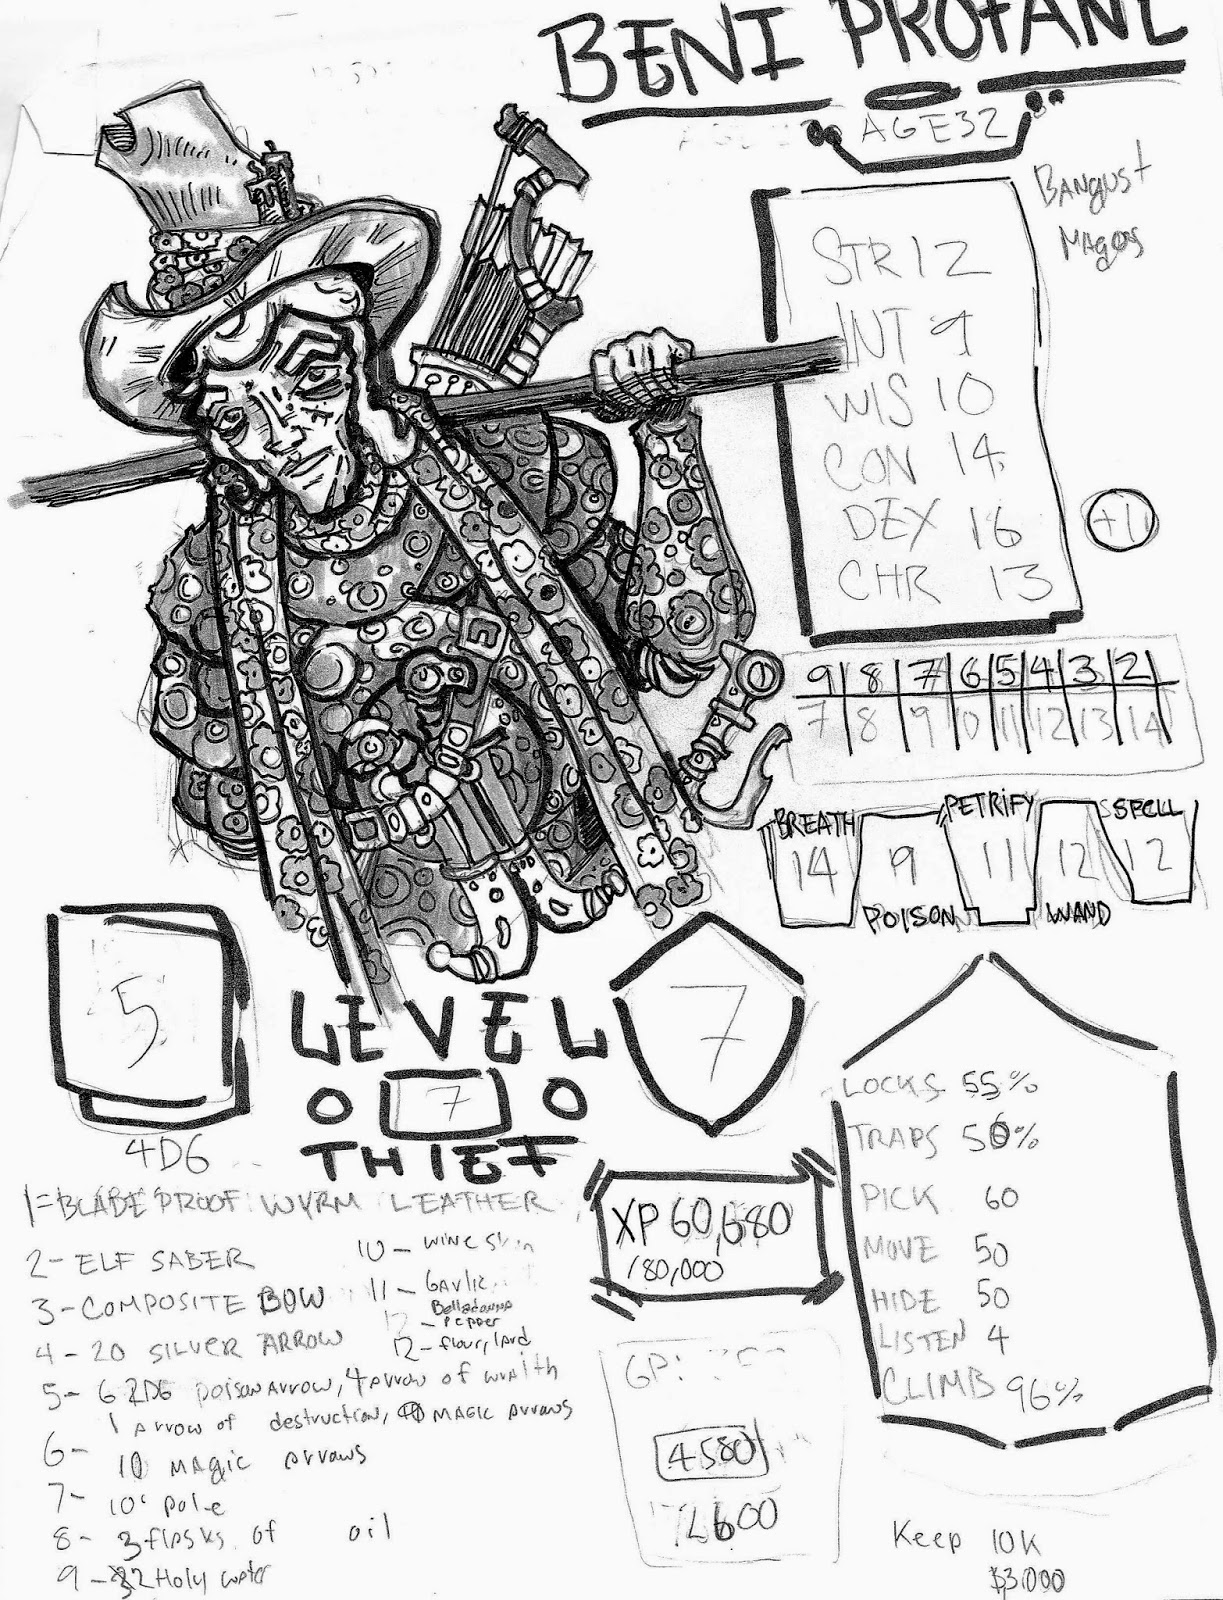 BENI PROFANE
AGE 32
STR 12
INT 9
WIS 10
CON 14
DEX 16
CHR 13
+1
9 8 7 6 5 4 3 2
7 8 9 10 11 12 13 14
BREATH 14
POISON 9
PETRIFY 11
WAND 12
SPELL 12
5
4D6
LEVEL
7
THIEF
7
LOCKS 55%
TRAPS 50%
PICK 60
MOVE 50
HIDE 50
LISTEN 4
CLIMB 96%
XP 60,680
180,000
GP:
4580
Keep 10K
$3.000
1=BLADE PROOF WYRM LEATHER
2- ELF SABER
3- COMPOSITE BOW
4- 20 SILVER ARROW
5- 6 2D6 poison Arrow, 4 Arrow of wrath
1 Arrow of destruction, MAGIC Arrows
6- 10 MAGIC Arrows
7- 10' pole
8- 3 flasks of oil
9- Holy water
10- wine skin
11- Garlic
Belladonna
12- Pepper
12- flour, lard